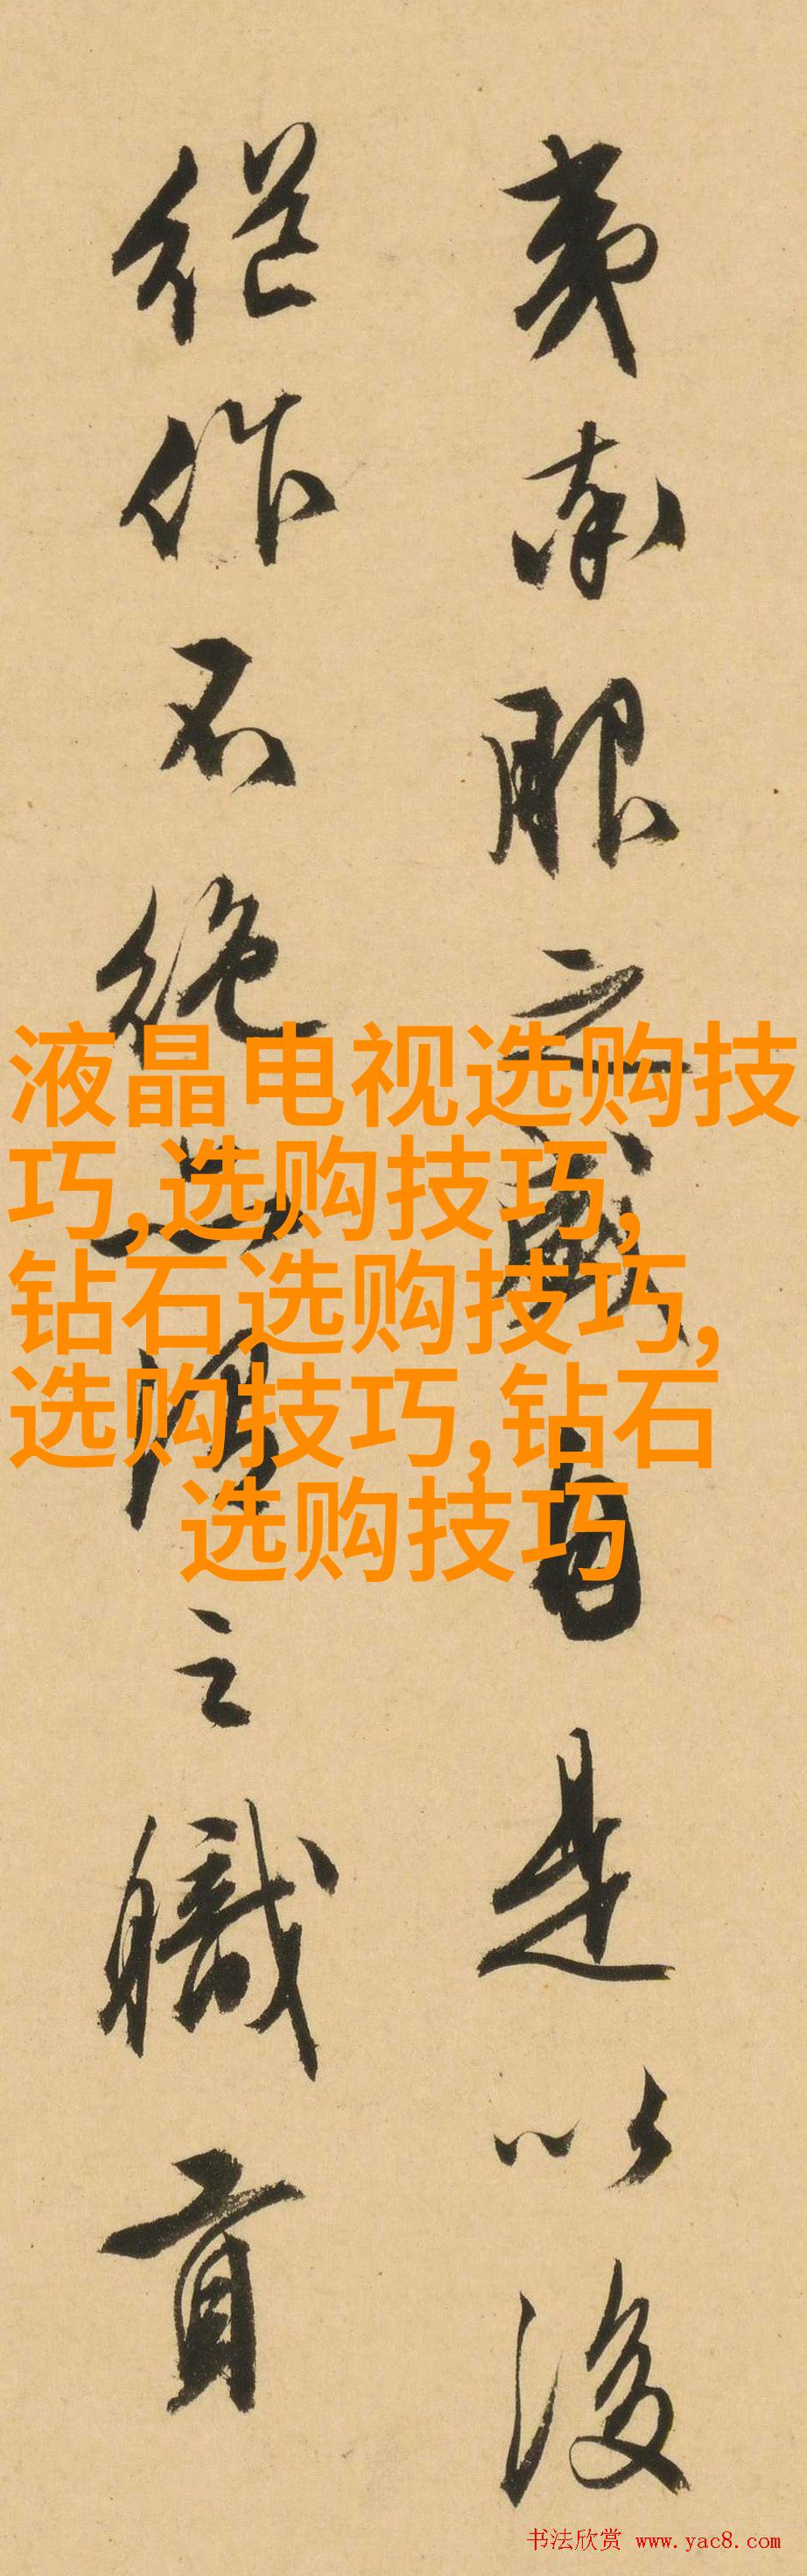 夷率服之盛自是以後
繼作不絕一時之職貢
液晶电视选购技
巧,选购技巧,
钻石选购技巧,
选购技巧,钻石
选购技巧
书法欣赏 www.yac8.com